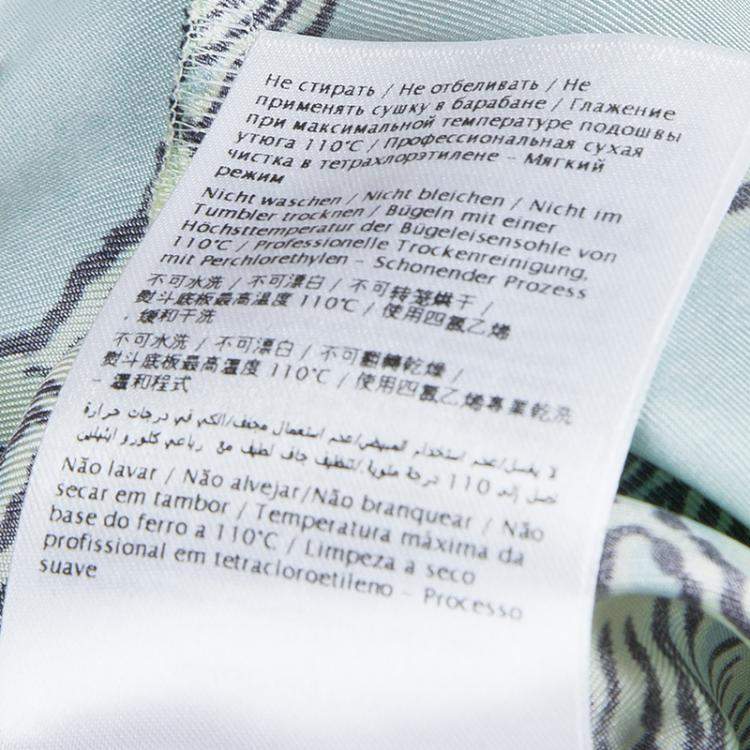 Не стирать / Не отбеливать / Не
применять сушку в барабане / Глажение
при максимальной температуре подошвы
утюга 110°C / Профессиональная сухая
чистка в тетрахлорэтилене – Мягкий
режим
Nicht waschen / Nicht bleichen / Nicht im
Tumbler trocknen / Bügeln mit einer
Höchsttemperatur der Bügeleisensohle von
110°C / Professionelle Trockenreinigung,
mit Perchlorethylen – Schonender Prozess
不可水洗 / 不可漂白 / 不可转笼烘干 /
熨斗底板最高温度 110°C / 使用四氯乙烯
, 缓和干洗
不可水洗 / 不可漂白 / 不可翻轉乾燥 /
熨斗底板最高溫度 110°C / 使用四氯乙烯專業乾洗
- 溫和程式
لا يغسل/عدم استخدام المبيض/عدم استعمال مجفف/الكي في درجات حرارة
تصل إلى 110 درجة مئوية/تنظيف جاف لطيف مع رباعي كلورو ايثيلين
Não lavar / Não alvejar/Não branquear / Não
secar em tambor / Temperatura máxima da
base do ferro a 110°C / Limpeza a seco
profissional em tetracloroetileno – Processo
suave